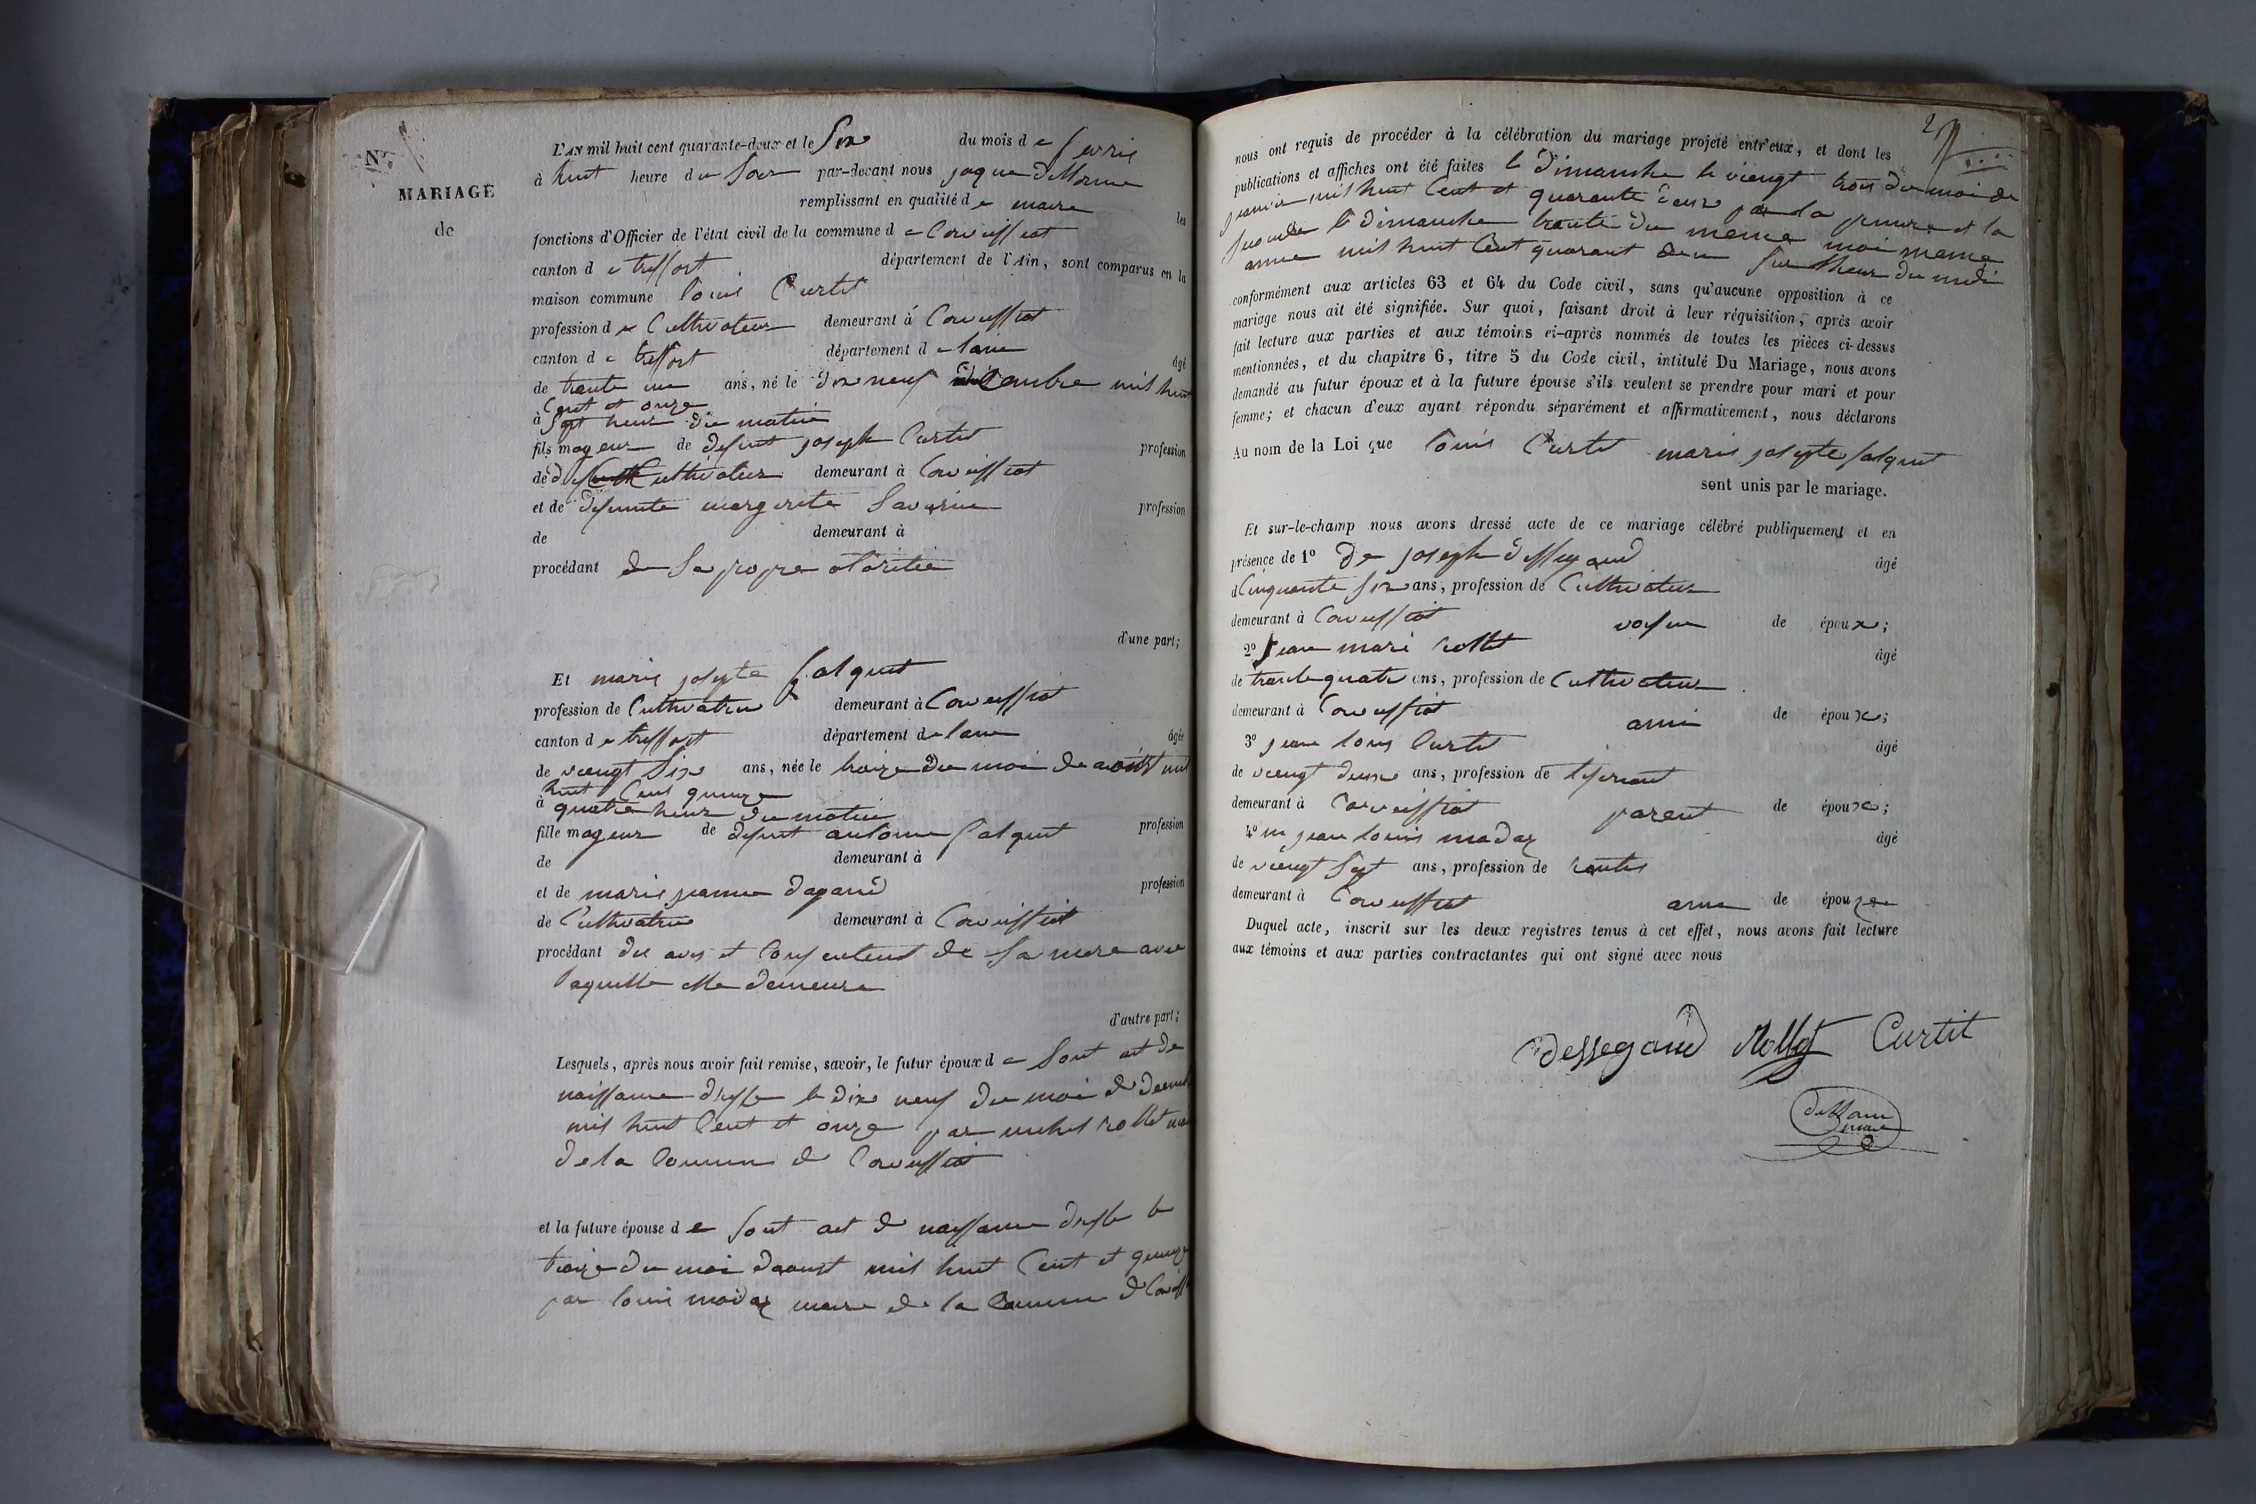 N.
MARIAGE
de
L'AN mil huit cent quarante-deux et le Six du mois de fevrie
à huit heure du Soir par-devant nous jaque
remplissant en qualité de maire les
fonctions d'Officier de l'état civil de la commune de Corveissiat
canton de treffort département de l'Ain, sont comparus en la
maison commune louis Curtit
profession de Cultivateur demeurant à Corveissiat
canton de treffort département de lain âgé
de trante un ans, né le dix neuf decembre mil huit
Cent et onze
à Sept heur du matin
fils mageur de defunt joseph Curtit profession
de Cultivateur demeurant à Corveissiat
et de defunte margerite Savarin profession
de demeurant à
procédant de Sa propre otoritée
d'une part;
Et marie josepte falquet
profession de Cultivatrice demeurant à Corveissiat
canton de treffort département de lain âgée
de viengt Six ans, née le traize du moi de aoust mil
huit Cent quinze
à quatre heur du matin
fille mageur de defunt antoine falquet profession
de demeurant à
et de marie jeanne dagand profession
de Cultivatrice demeurant à Corveissiat
procédant de avis et Consentent de Sa mere avec
laquelle elle demeure
d'autre part;
Lesquels, après nous avoir fait remise, savoir, le futur époux de Sont act de
naissance dressé le dix neuf du moi de decemb
mil huit Cent et onze par michel rollet
de la Commune de Corveissiat
et la future épouse de Sont act de naissance dressé le
traize du moi daoust mil huit Cent et quinze
par louis madaz maire de la Commune de
2
nous ont requis de procéder à la célébration du mariage projeté entr'eux, et dont les
publications et affiches ont été faites le dimanche le viengt trois du moi de
janvie mil huit Cent et quarante deux la premiere et la
Segonde le dimanche trante du meme moi meme
anne mil huit Cent quarant deux Sur lheur du midi
conformément aux articles 63 et 64 du Code civil, sans qu'aucune opposition à ce
mariage nous ait été signifiée. Sur quoi, faisant droit à leur réquisition, après avoir
fait lecture aux parties et aux témoins ci-après nommés de toutes les pièces ci-dessus
mentionnées, et du chapitre 6, titre 5 du Code civil, intitulé Du Mariage, nous avons
demandé au futur époux et à la future épouse s'ils veulent se prendre pour mari et pour
femme; et chacun d'eux ayant répondu séparément et affirmativement, nous déclarons
Au nom de la Loi que louis Curtit marie josepte falquet
sont unis par le mariage.
Et sur-le-champ nous avons dressé acte de ce mariage célébré publiquement et en
présence de 1º De joseph dessegand âgé
de Cinquante Six ans, profession de Cultivateur
demeurant à Corveissiat voisin de époux;
2º jean marie rollet âgé
de trante quatre ans, profession de Cultivateur
demeurant à Corveissiat ami de époux;
3º jean louis Curtit âgé
de viengt deux ans, profession de tiserant
demeurant à Corveissiat parent de époux;
4º m jean louis madaz âgé
de viengt Sept ans, profession de rentier
demeurant à Corveissiat ami de époux
Duquel acte, inscrit sur les deux registres tenus à cet effet, nous avons fait lecture
aux témoins et aux parties contractantes qui ont signé avec nous
dessegand Rollet Curtit
maire